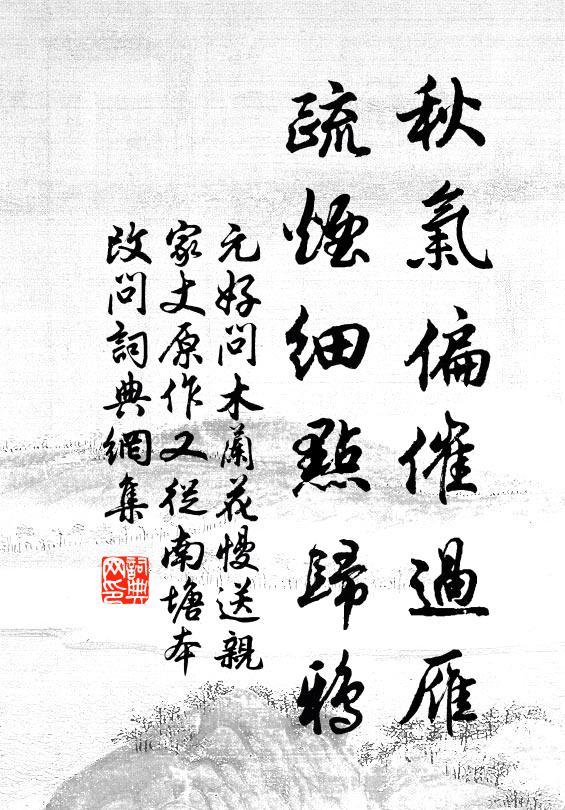 秋氣偏催過雁
疏煙細點歸鴉
元好問木蘭花慢送親
家丈原作又從南塘本
改問詞典網集
詞典網印